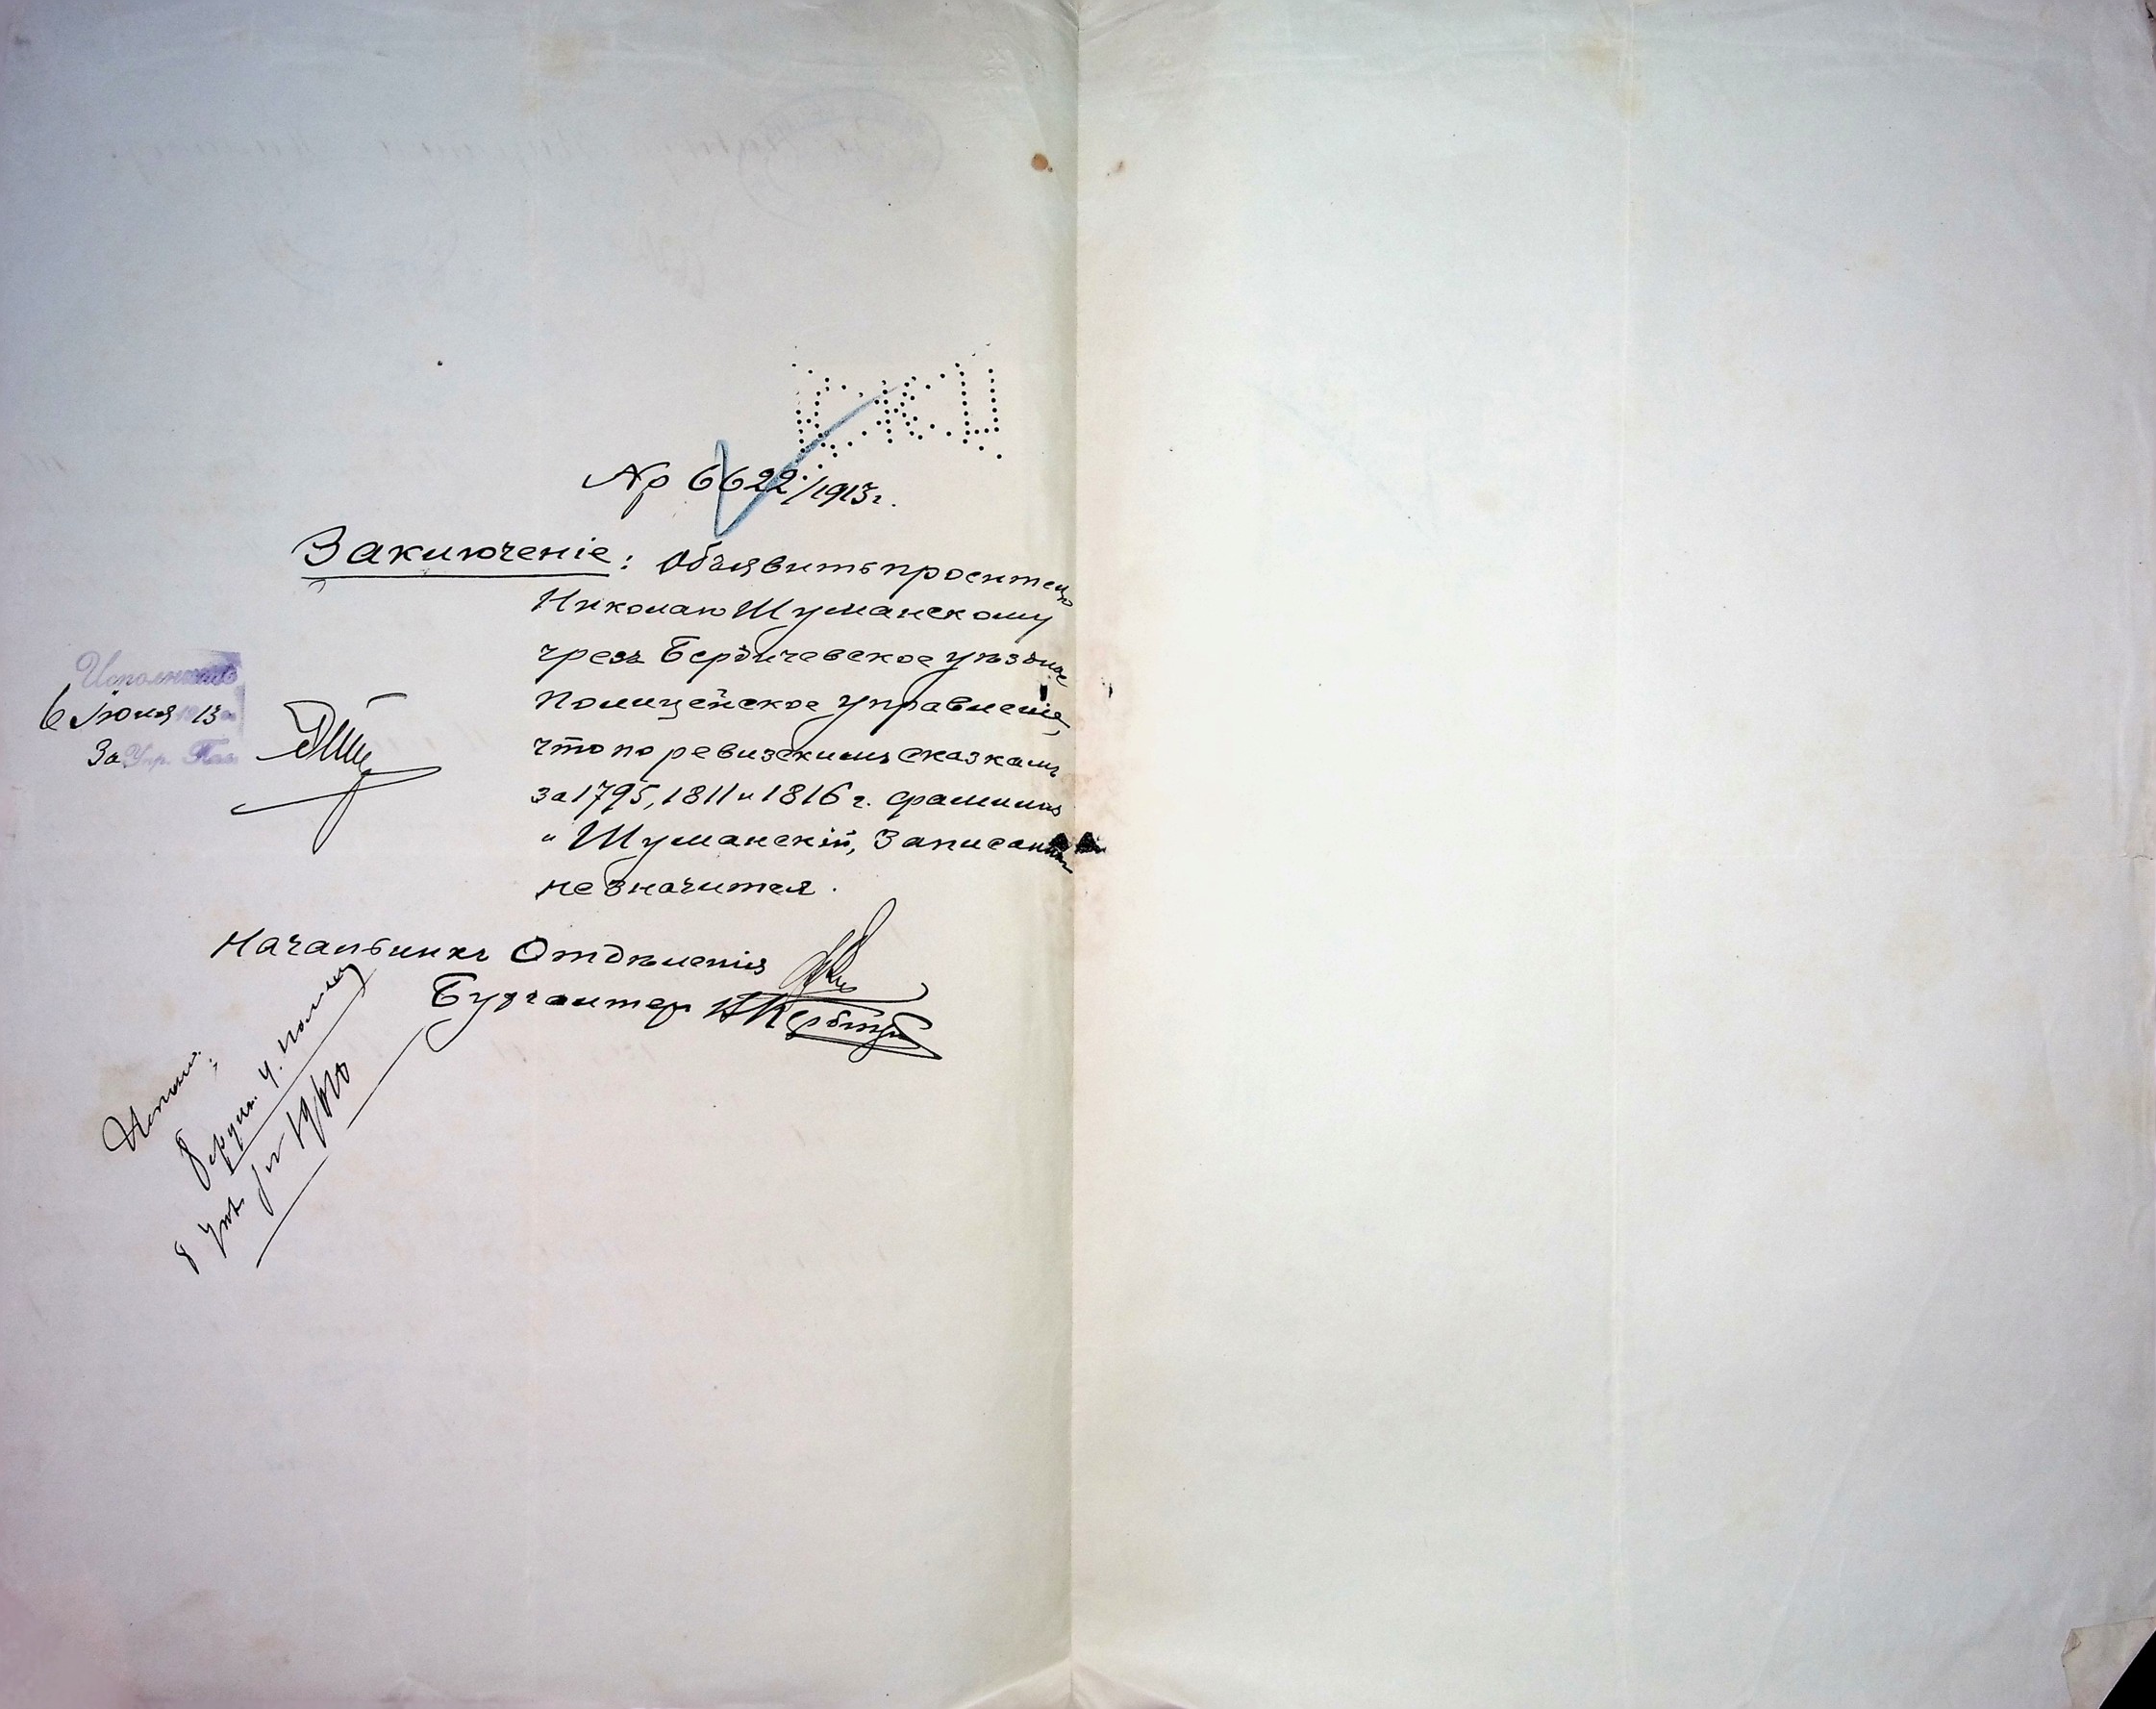 № 6622/1913 г.
Заключеніе: Объявить просителю
Николаю Шуманскому
чрезъ Бердичевское уѣздное
Полицейское управленіе,
что по ревизскимъ сказкамъ
за 1795, 1811 и 1816 г. фамилія
„Шуманскій„ записанною
не значится.
Исполнить
6 Іюня 13
За Упр. Пал
Начальникъ Отдѣленія
Бухгалтеръ
Исполн.